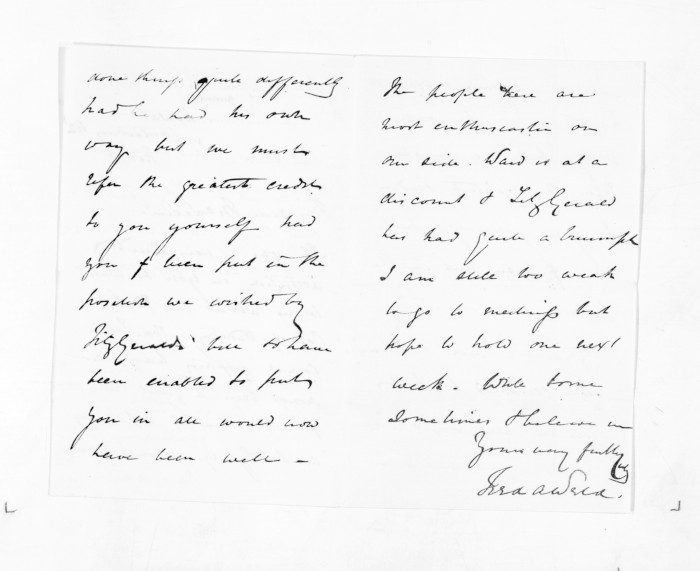 done things quite differently
had he had his own
way but we must
refer the greatest credit
to you yourself had
you been put in the
position we wished by
FitzGerald's bill to have
been enabled to put
you in all would now
have been well –
The people here are
most enthusiastic on
our side. Ward is at a
discount & FitzGerald
has had quite a triumph
I am still too weak
to go to meetings but
hope to hold one next
week. Write some
sometimes & believe me
Yours very faithfully
Fred A Weld.